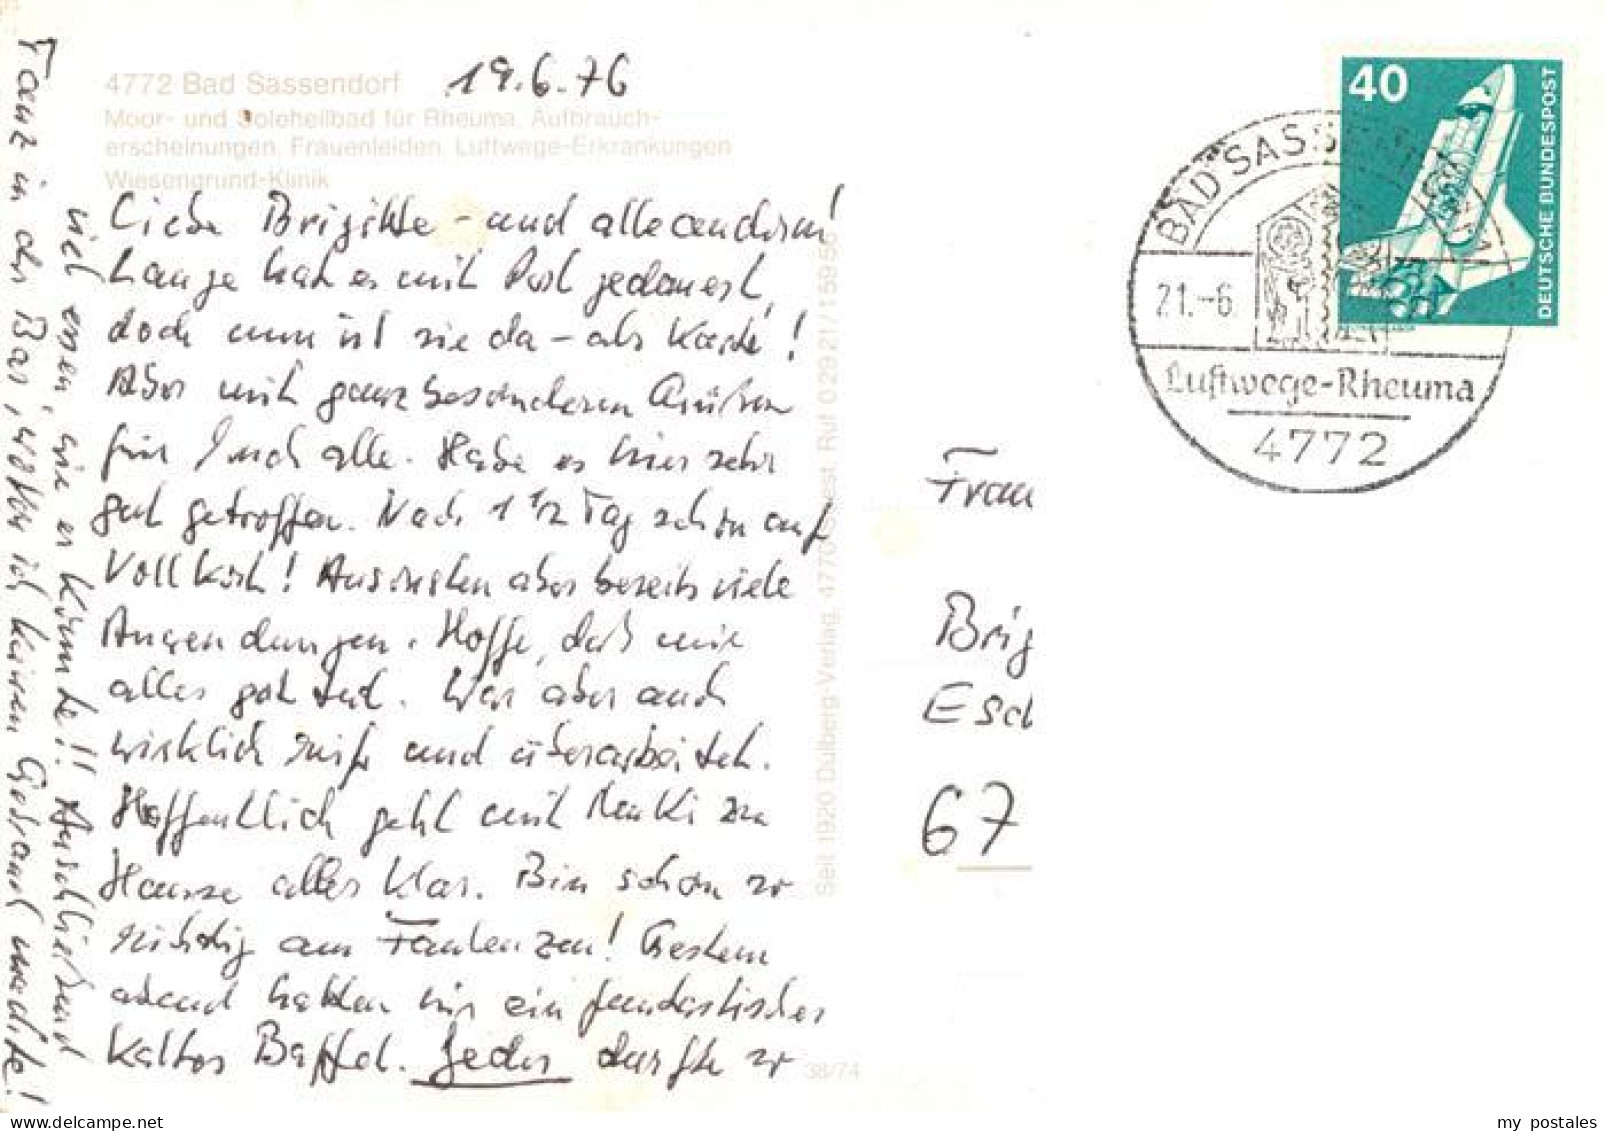 4772 Bad Sassendorf
19.6.76
Moor- und Soleheilbad für Rheuma, Aufbrauch-
erscheinungen, Frauenleiden, Luftwege-Erkrankungen
Wiesengrund-Klinik
Liebe Brigitte - und alle anderen!
Lange hat es mit Post gedauert,
doch nun ist sie da - als Karte!
Aber mit ganz besonderen Grüßen
für Euch alle. Habe es hier sehr
gut getroffen. Nach 1 1/2 Tag schon auf
Vollkost! Ansonsten aber bereits viele
Anwendungen. Hoffe, daß mir
alles gut tut. War aber auch
wirklich reif und überarbeitet.
Hoffentlich geht mit zu
Hause alles klar. Bin schon so
richtig am Faulenzen! Gestern
abend hatten wir ein fantastisches
kaltes Büffet. Jeder durfte so
viel essen, wie er konnte!! Anschließend
Tanz in der Bar, wovon ich keinen Gebrauch machte!
Seit 1920 Dülberg-Verlag, 4770 Soest, Ruf 02921/15956
38/74
40
DEUTSCHE BUNDESPOST
BAD SASS
21.-6.
Luftwege-Rheuma
4772
Frau
Brig
Esch
67
my postales